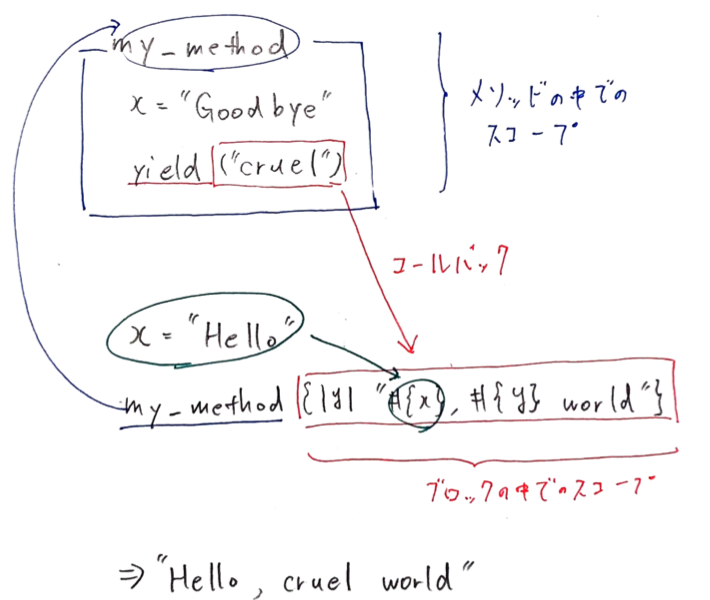 my_method
x = "Goodbye"
yield ("cruel")
メソッドの中での
スコープ
コールバック
x = "Hello"
my_method {|y| "#{x}, #{y} world"}
ブロックの中でのスコープ
⇒ "Hello, cruel world"